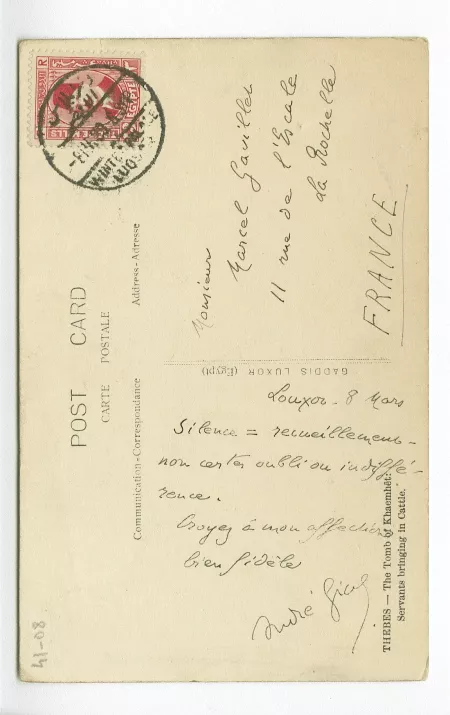 POST CARD
CARTE POSTALE
Communication-Correspondance
Address-Adresse
GADDIS LUXOR (Egypt)
WINTER PALACE
Monsieur
Marcel Gaillet
11 rue de l'Escale
La Rochelle
FRANCE
Louxor. 8 Mars
Silence = recueillement -
non certes oubli ou indiffé-
rence.
Croyez à mon affection
bien fidèle
André Gide
THEBES — The Tomb of Khaemhêt:
Servants bringing in Cattle.
41-08